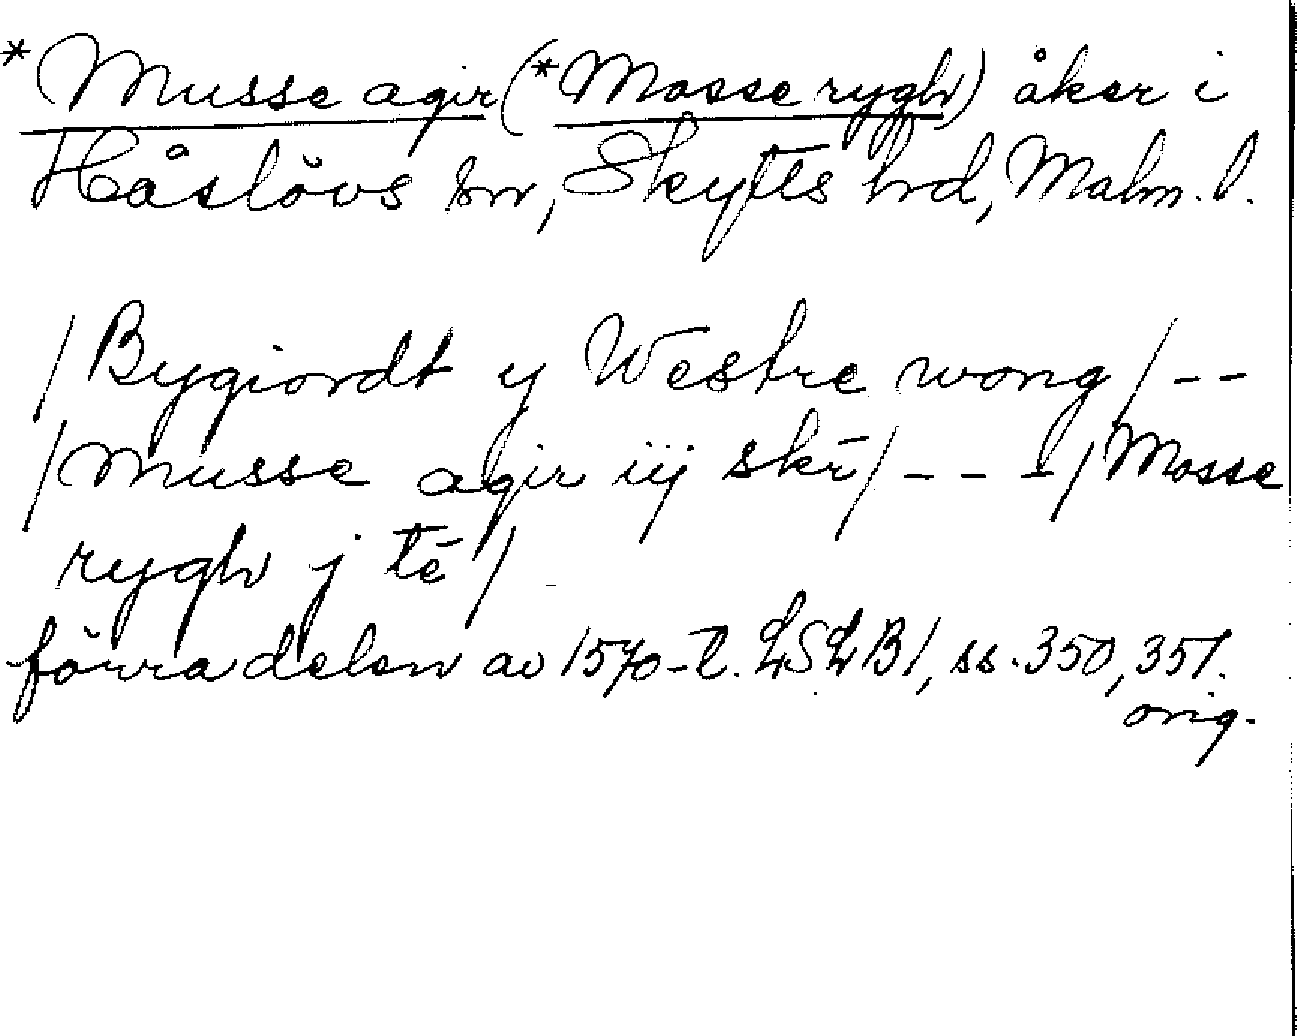 *Musse agir (*Mosse rygh) åker i
Håslövs sn, Skytts hrd, Malm. l.
/Bygiordt y Westre wong/--
/Musse agir iij skr̄/---/Mosse
rygh j tē/
förra delen av 1570-t. LSLB1, ss. 350, 351.
orig.